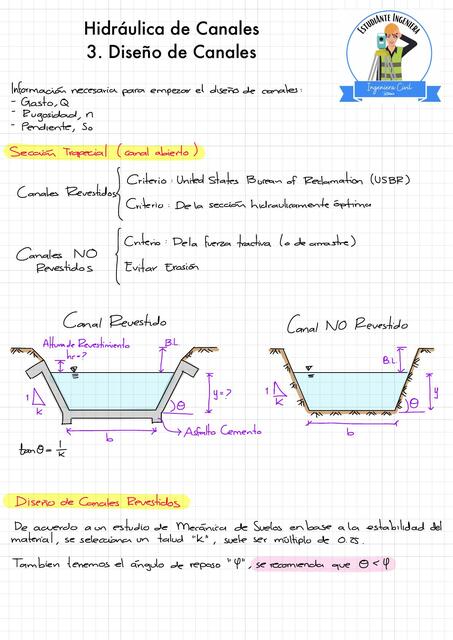 Hidráulica de Canales
3. Diseño de Canales
ESTUDIANTE INGENIERA
Ingeniera Civil
Información necesaria para empezar el diseño de canales:
- Gasto, Q
- Rugosidad, n
- Pendiente, So
Sección Trapecial (canal abierto)
Canales Revestidos
Criterio: United States Bureau of Reclamation (USBR)
Criterio: De la sección hidraulicamente óptima
Canales NO
Revestidos
Criterio: De la fuerza tractiva (o de arrastre)
Evitar Erosión
Canal Revestido
Altura de Revestimiento
hr=?
B.L
1
k
y=?
θ
b
Asfalto Cemento
tanθ = 1/k
Canal NO Revestido
B.L
1
k
y
θ
b
Diseño de Canales Revestidos
De acuerdo a un estudio de Mecánica de Suelos en base a la estabilidad del
material, se selecciona un talud "k", suele ser múltiplo de 0.25.
Tambien tenemos el ángulo de reposo "φ", se recomienda que θ < φ